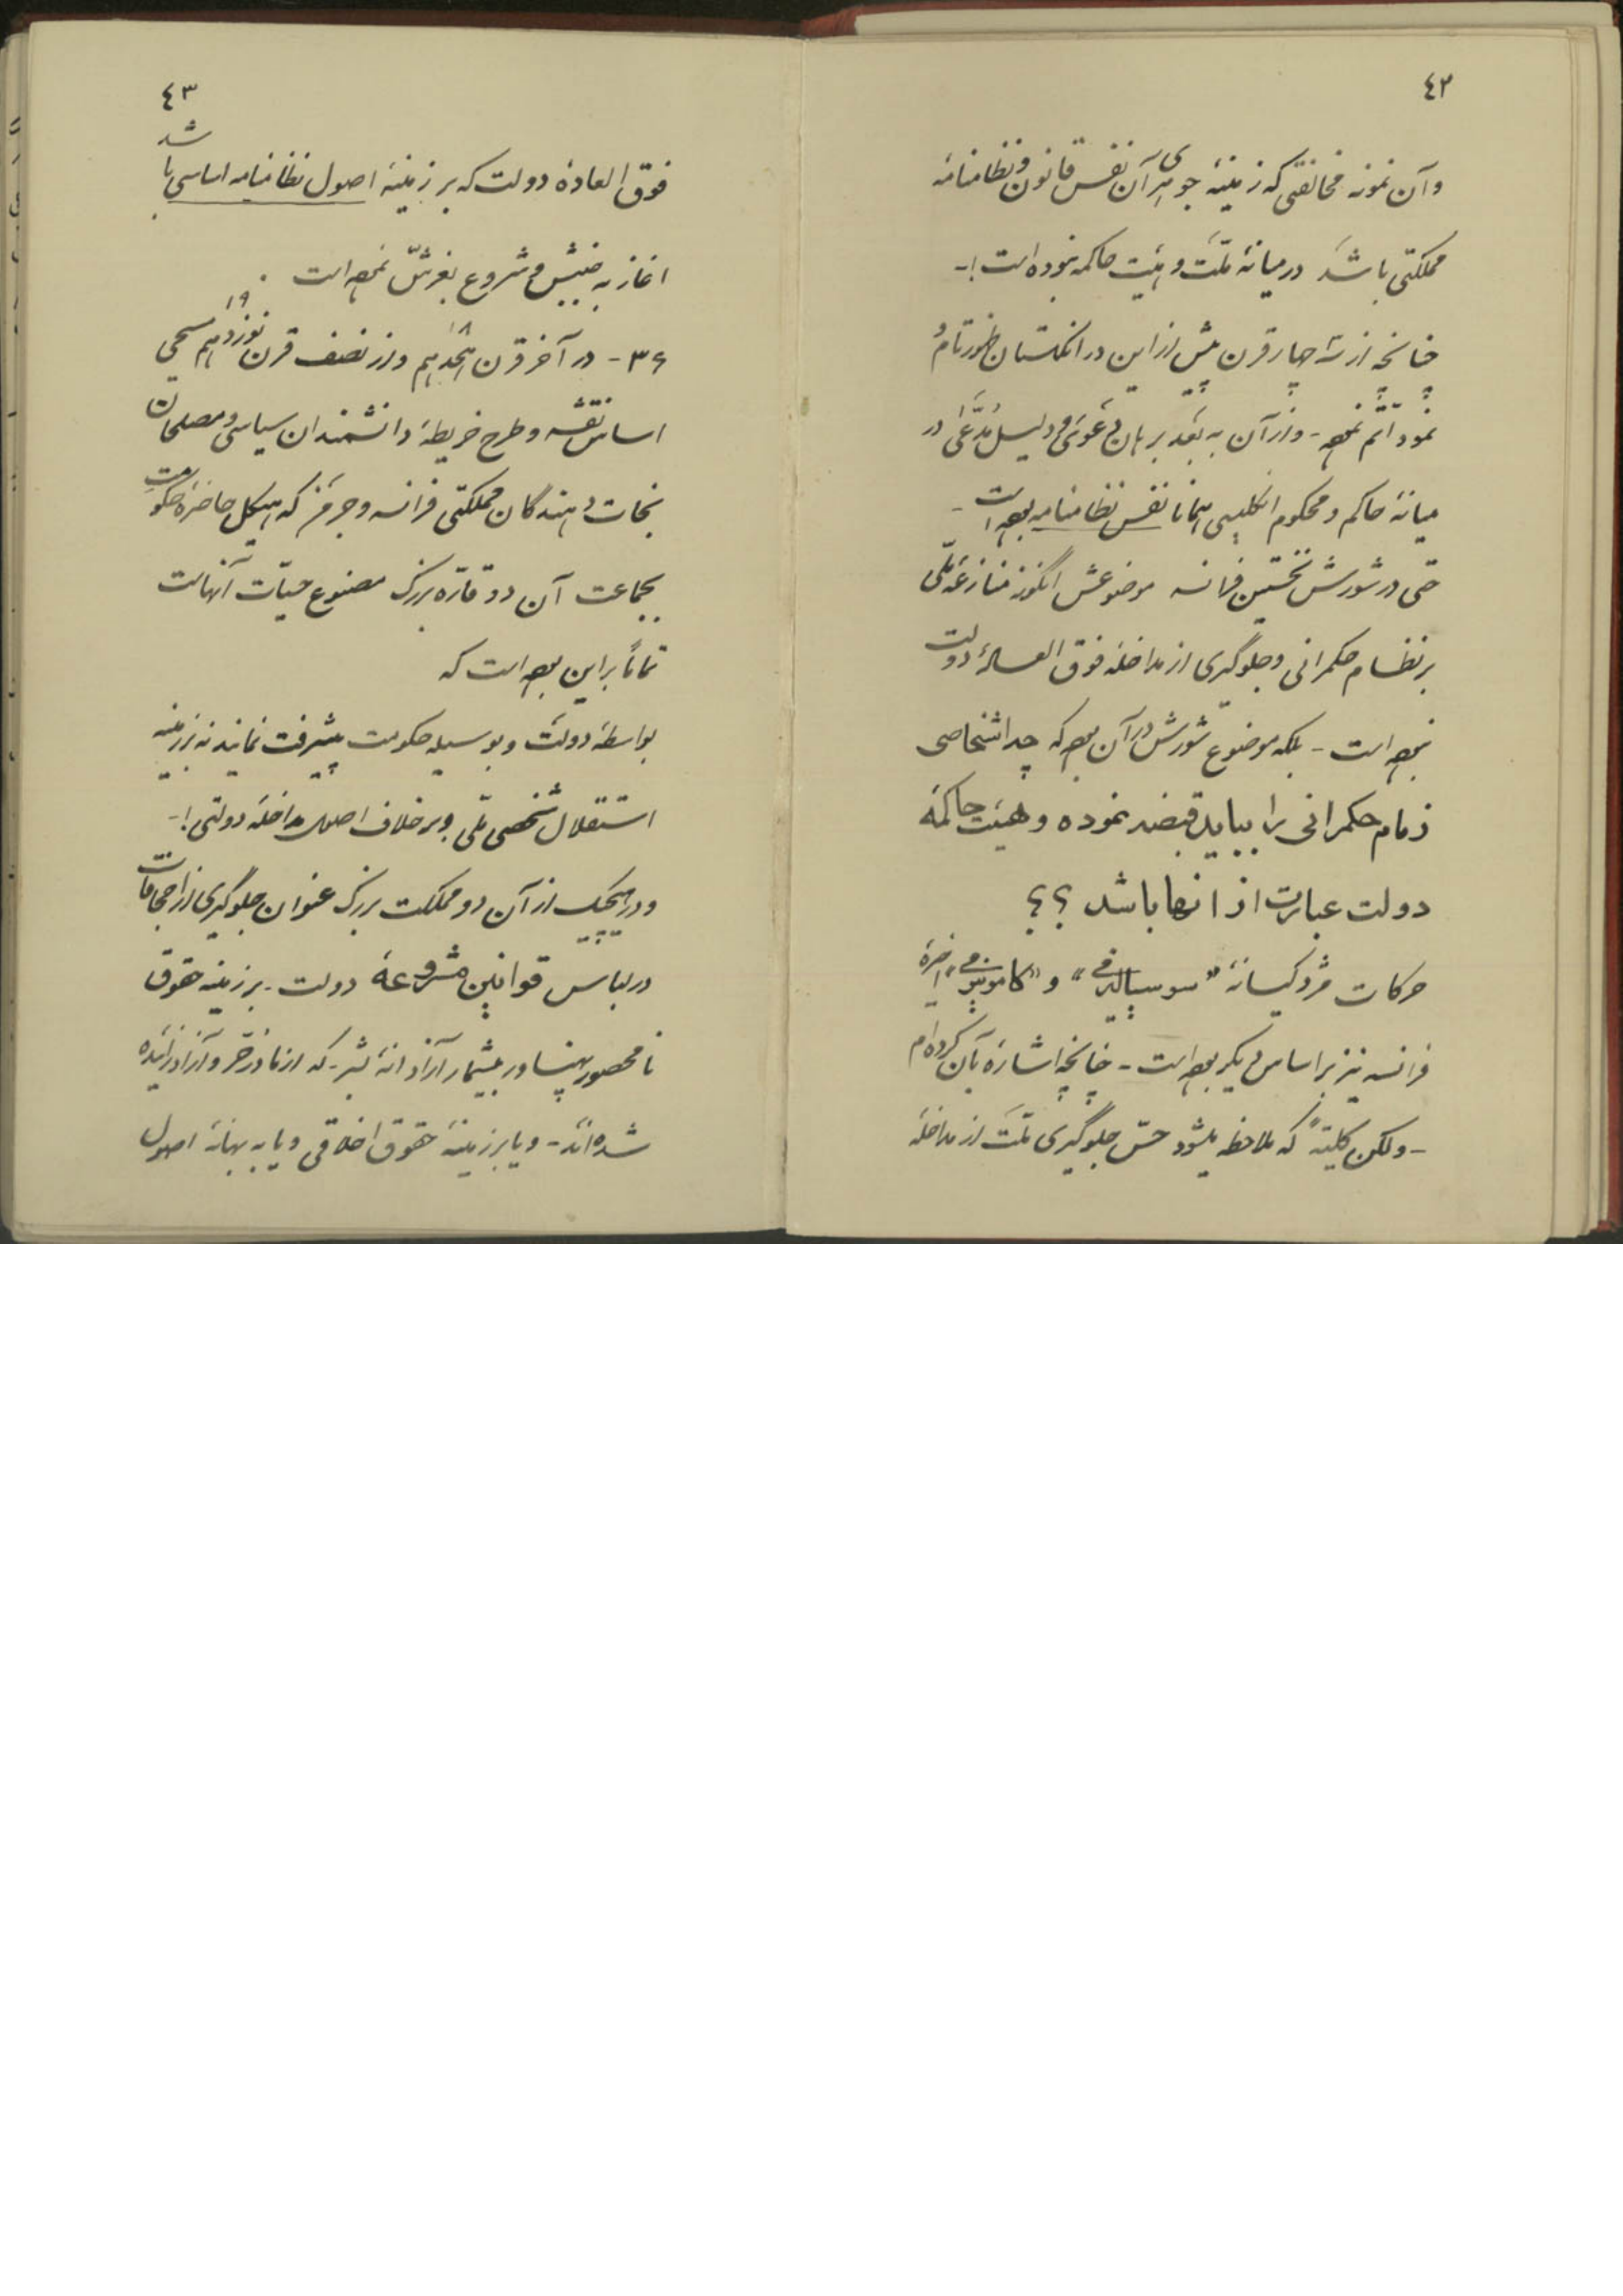 ٤٢
وآن نمونه مخالفتی که زمینهٔ جوهری آن نفس قانون و نظامنامهٔ
مملکتی باشد در میانهٔ ملّت و هیئت حاکمه نبوده است !-
چنانچه از سه چهار قرن پیش از این در انگلستان ظهور تامُ
نمود اتم نموده - و از آن به بعد برهان دعوی و دلیل مدّعی در
میانهٔ حاکم و محکوم انگلیسی همانا نفس نظامنامه بوده است -
حتی در شورش نخستین فرانسه موضوعش اینگونه منازعهٔ ملّی
بر نظام حکمرانی و جلوگیری از مداخلهٔ فوق العادهٔ دولت
نبوده است - بلکه موضوع شورش در آن بوده که چه اشخاصی
زمام حکمرانی را بباید قبضه نموده و هیئت حاکمه
دولت عبارت از انها باشد ؟؟
حرکات مزدکیسانهٔ "سوسیالیزمی" و "کامونیزمی" اخیرهٔ
فرانسه نیز بر اساس دیگر بوده است - چنانچه اشاره بآن کرده‌ام
- ولکن کلیّةً که ملاحظه میشود حسّ جلوگیری ملت از مداخلهٔ
٤٣
فوق العادهٔ دولت که بر زمینهٔ اصول نظامنامه اساسی باشد
اغاز به جنبش و شروع بغرشّ نموده است .
۳۶ - در آخر قرن هیجدهم ۱۸ و از نصف قرن نوزدهم ۱۹ مسیحی
اساس نقشه و طرح خریطهٔ دانشمندان سیاسی و مصلحان
نجات دهندگان مملکتی فرانسه و جرمن که هیکل حاضرهٔ حکومت
بجماعت آن دو قارّه بزرگ مصنوع حیات آنهاست
تماماً براین بوده است که
بواسطهٔ دولت و بوسیلهٔ حکومت پیشرفت نمایند نه بر زمینه
استقلال شخصی ملّی و بر خلاف اصول مداخلهٔ دولتی !-
و در هیچیک از آن دو مملکت بزرگ عنوان جلوگیری از اجحافات
در لباس قوانین مشروعهٔ دولت - بر زمینه حقوق
نامحصور پهناور بیشمار آزادانهٔ بشر - که از مادر حرّ و آزاد زائیده
شده‌اند - و یا بر زمینهٔ حقوق اخلاقی و یا به بهانهٔ اصول